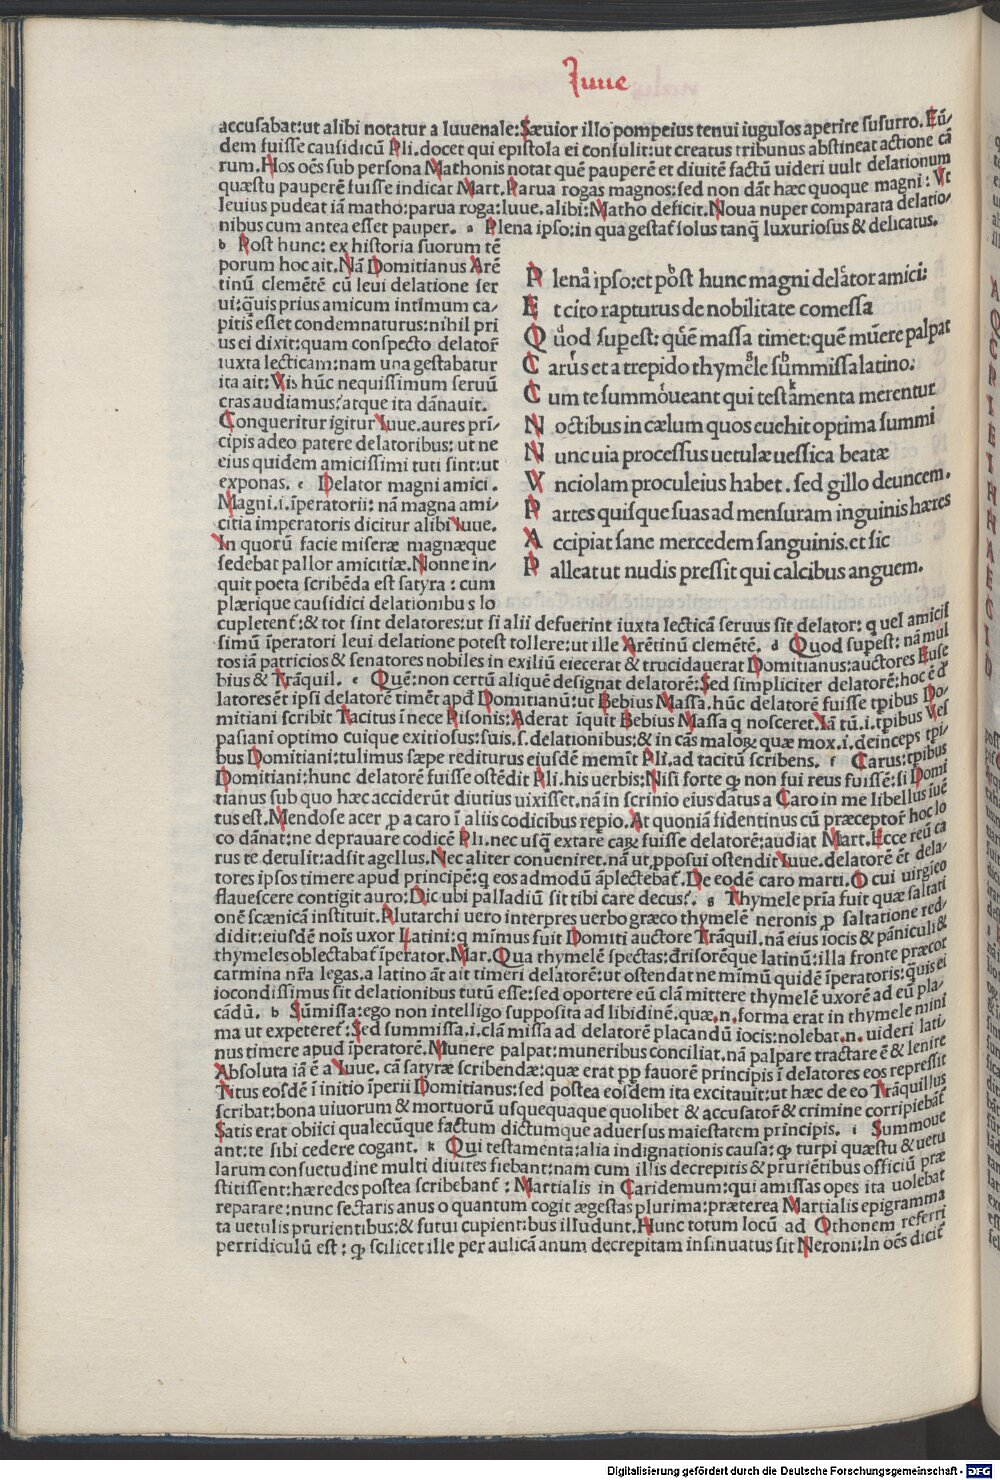 Iuue
accusabat:ut alibi notatur a Iuuenale:Sæuior illo pompeius tenui iugulos aperire susurro. Eū/
dem fuisse causidicū Pli.docet qui epistola ei consulit:ut creatus tribunus abstineat actione cā
rum.Hos oēs sub persona Mathonis notat quē pauperē et diuitē factū uideri uult delationum
quæstu pauperē fuisse indicat Mart.Parua rogas magnos:sed non dāt hæc quoque magni: Vt
leuius pudeat iā matho:parua roga:Iuue.alibi:Matho deficit.Noua nuper comparata delatio/
nibus cum antea esset pauper. a Plena ipso:in qua gestat solus tanq̄ luxuriosus & delicatus.
b Post hunc: ex historia suorum tē
porum hoc ait.Nā Domitianus Arē
tinū clemētē cū leui delatione fer
ui:quis prius amicum intimum ca/
pitis esset condemnaturus:nihil pri
us ei dixit:quam conspecto delatoř
iuxta lecticam:nam una gestabatur
ita ait: Vis hūc nequissimum seruū
cras audiamus?atque ita dānauit.
Conqueritur igitur Iuue.aures prī/
cipis adeo patere delatoribus:ut ne
eius quidem amicissimi tuti sint:ut
exponas. c Delator magni amici.
Magni.i.īperatorii: nā magna ami/
citia imperatoris dicitur alibi Iuue.
In quorū facie miseræ magnæque
sedebat pallor amicitiæ.Nonne in/
quit poeta scribēda est satyra : cum
plærique causidici delationibus lo
P lenā ipso:et pᵇost hunc magni delᶜator amici:
E t cito rapturus de nobilitate comessa
Q ᵈuod supest: quᵉē massa timet:quē mūere palpat
C arᶠus et a trepido thymᵍele sʰummissa latino:
C um te summⁱoueant qui testᵏamenta merentur
N octibus in cælum quos euehit optima summi
N unc uia processus uetulæ uessica beatæ
V nciolam proculeius habet. sed gillo deuncem.
P artes quisque suas ad mensuram inguinis hæres
A ccipiat sane mercedem sanguinis.et sic
P alleat ut nudis pressit qui calcibus anguem.
cupletent᷑:& tot sint delatores:ut si alii defuerint iuxta lecticā seruus sit delator: q uel amicis
simū īperatori leui delatione potest tollere:ut ille Arētinū clemētē. d Quod supest: nā mul
tos iā patricios & senatores nobiles in exiliū eiecerat & trucidauerat Domitianus:auctores Euse
bius & Trāquil. e Quē:non certū aliquē designat delatorē:Sed simpliciter delatorē:hoc ē đ
latoresēt ipsi delatorē timēt apđ Domitianū:ut Bebius Massa.hūc delatorē fuisse tꝑibus Do/
mitiani scribit Tacitus ī nece Pisonis:Aderat iquit Bebius Massa q nosceret.Iā tū.i.tꝑibus Ves
pasiani optimo cuique exitiosus:suis.s.delationibus:& in cās maloꝝ quæ mox.i.deinceps tꝑi/
bus Domitiani:tulimus sæpe rediturus eiusdē memīt Pli.ad tacitū scribens. f Carus:tꝑibus
Domitiani:hunc delatorē fuisse ostēdit Pli.his uerbis:Nisi forte ꝙ non fui reus fuissē:si Domi
tianus sub quo hæc acciderūt diutius uixisset.nā in scrinio eius datus a Caro in me libellus iuē
tus est.Mendose acer ꝓ a caro ī aliis codicibus repio.At quoniā fidentinus cū præceptoř hoc lo
co dānat:ne deprauare codicē Pli.nec usq̄ extare caꝝ fuisse delatorē:audiat Mart.Ecce reū ca
rus te detulit:adsit agellus.Nec aliter conueniret.nā ut ꝓposui ostendit Iuue.delatorē ēt dela/
tores ipsos timere apud principē:q eos admodū āplectebat᷑.De eodē caro marti.O cui uirgieo
flauescere contigit auro:Dic ubi palladiū sit tibi care decus?. g Thymele pria fuit quæ saltati
onē scænicā instituit.Plutarchi uero interpres uerbo græco thymelē neronis ꝓ saltatione red/
didit:eiusdē nois uxor Latini:q mimus fuit Domiti auctore Trāquil.nā eius iocis & pāniculi &
thymeles oblectabat᷑ īperator.Mar.Qua thymelē spectas:đrisorēque latinū:illa fronte præcor
carmina nr̄a legas.a latino āt ait timeri delatorē:ut ostendat ne mimū quidē īperatoris:quis ei
iocondissimus sit delationibus tutū esse:sed oportere eū clā mittere thymelē uxorē ad eū pla/
cādū. h Sūmissa:ego non intelligo supposita ad libidinē.quæ.n.forma erat in thymele mimi
ma ut expeteret᷑:Sed summissa.i.clā missa ad delatorē placandū iocis:nolebat.n.uideri lati/
nus timere apud īperatorē.Munere palpat:muneribus conciliat.nā palpare tractare ē & lenire
Absoluta iā ē a Iuue. cā satyræ scribendæ:quæ erat ꝓp fauorē principis ī delatores eos repressit
Titus eosdē ī initio īperii Domitianus:sed postea eosdem ita excitauit:ut hæc de eo Trāquillus
scribat:bona uiuorum & mortuorū usquequaque quolibet & accusatoř & crimine corripiebat᷑
Satis erat obiici qualecūque factum dictumque aduersus maiestatem principis. i Summoue
ant:te sibi cedere cogant. k Qui testamenta:alia indignationis causa: ꝙ turpi quæstu & uetu
larum consuetudine multi diuites fiebant:nam cum illis decrepitis & pruriētibus officiū præ
stitissent:hæredes postea scribebant᷑ : Martialis in Caridemum:qui amissas opes ita uolebat
reparare:nunc sectaris anus o quantum cogit ægestas plurima:præterea Martialis epigramma
ta uetulis prurientibus:& futui cupientibus illudunt.Hunc totum locū ad Othonem referri
perridiculū est : ꝙ scilicet ille per aulicā anum decrepitam insinuatus sit Neroni:In oēs dicit᷑
Digitalisierung gefördert durch die Deutsche Forschungsgemeinschaft - DFG